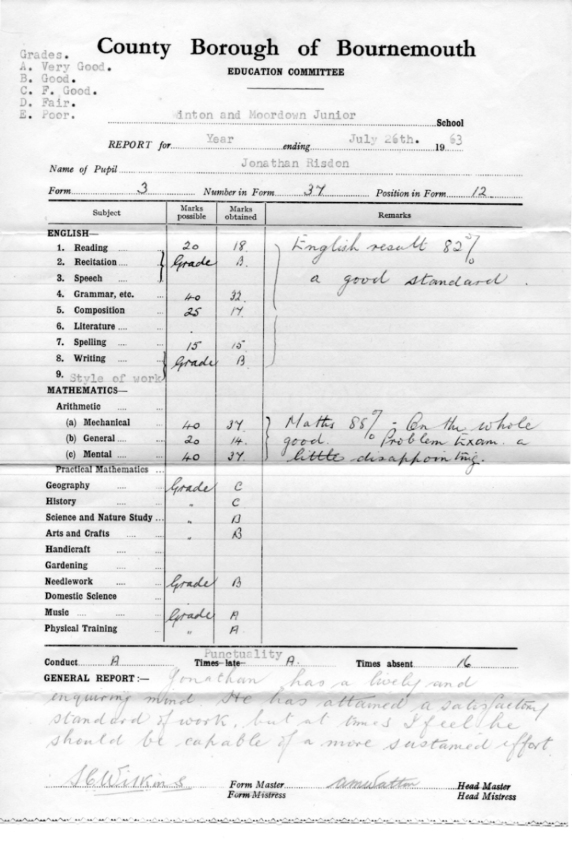 Grades.
A. Very Good.
B. Good.
C. F. Good.
D. Fair.
E. Poor.
County Borough of Bournemouth
EDUCATION COMMITTEE
inton and Moordown Junior School
REPORT for Year ending July 26th. 1963
Name of Pupil Jonathan Risdon
Form 3 Number in Form 37 Position in Form 12
Subject Marks possible Marks obtained Remarks
ENGLISH—
1. Reading 20 18 English result 82%
2. Recitation Grade B.
3. Speech a good standard.
4. Grammar, etc. 40 32.
5. Composition 25 17.
6. Literature
7. Spelling 15 15
8. Writing Grade B
9. Style of work
MATHEMATICS—
Arithmetic
(a) Mechanical 40 37. Maths 88% - On the whole
(b) General 20 14. good. Problem Exam. a
(c) Mental 40 37. little disappointing.
Practical Mathematics
Geography Grade C
History " C
Science and Nature Study " B
Arts and Crafts " B
Handicraft
Gardening
Needlework Grade B
Domestic Science
Music Grade A
Physical Training " A
Punctuality
Conduct A Times late A. Times absent 16
GENERAL REPORT:— Jonathan has a lively and
enquiring mind He has attained a satisfactory
standard of work, but at times I feel he
should be capable of a more sustained effort.
S.C. Wilkins Form Master Head Master
Form Mistress Head Mistress